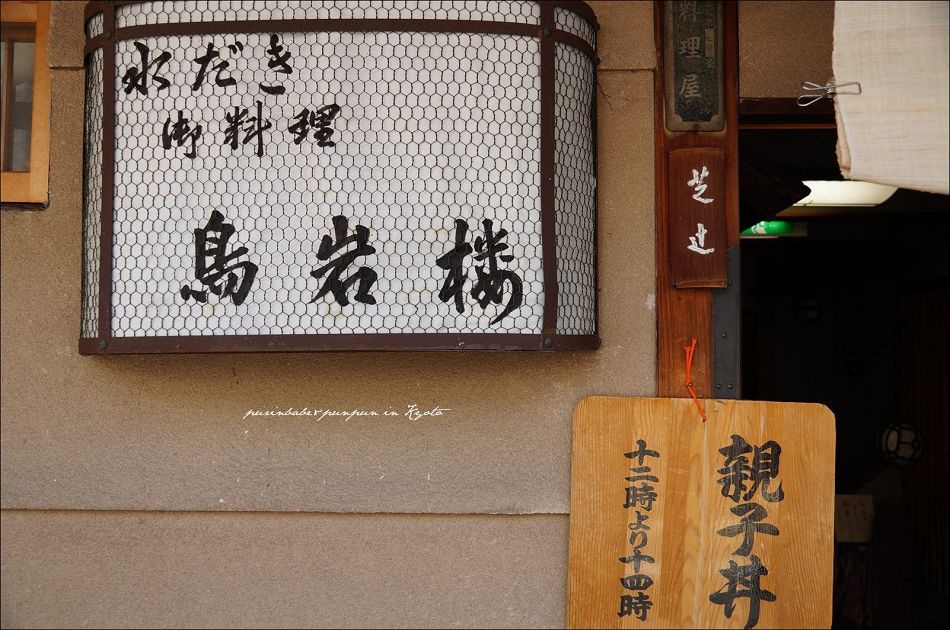 水だき
御料理
鳥岩楼
料理屋
芝辻
親子丼
十二時より十四時
purinbabe&punpun in Kyoto